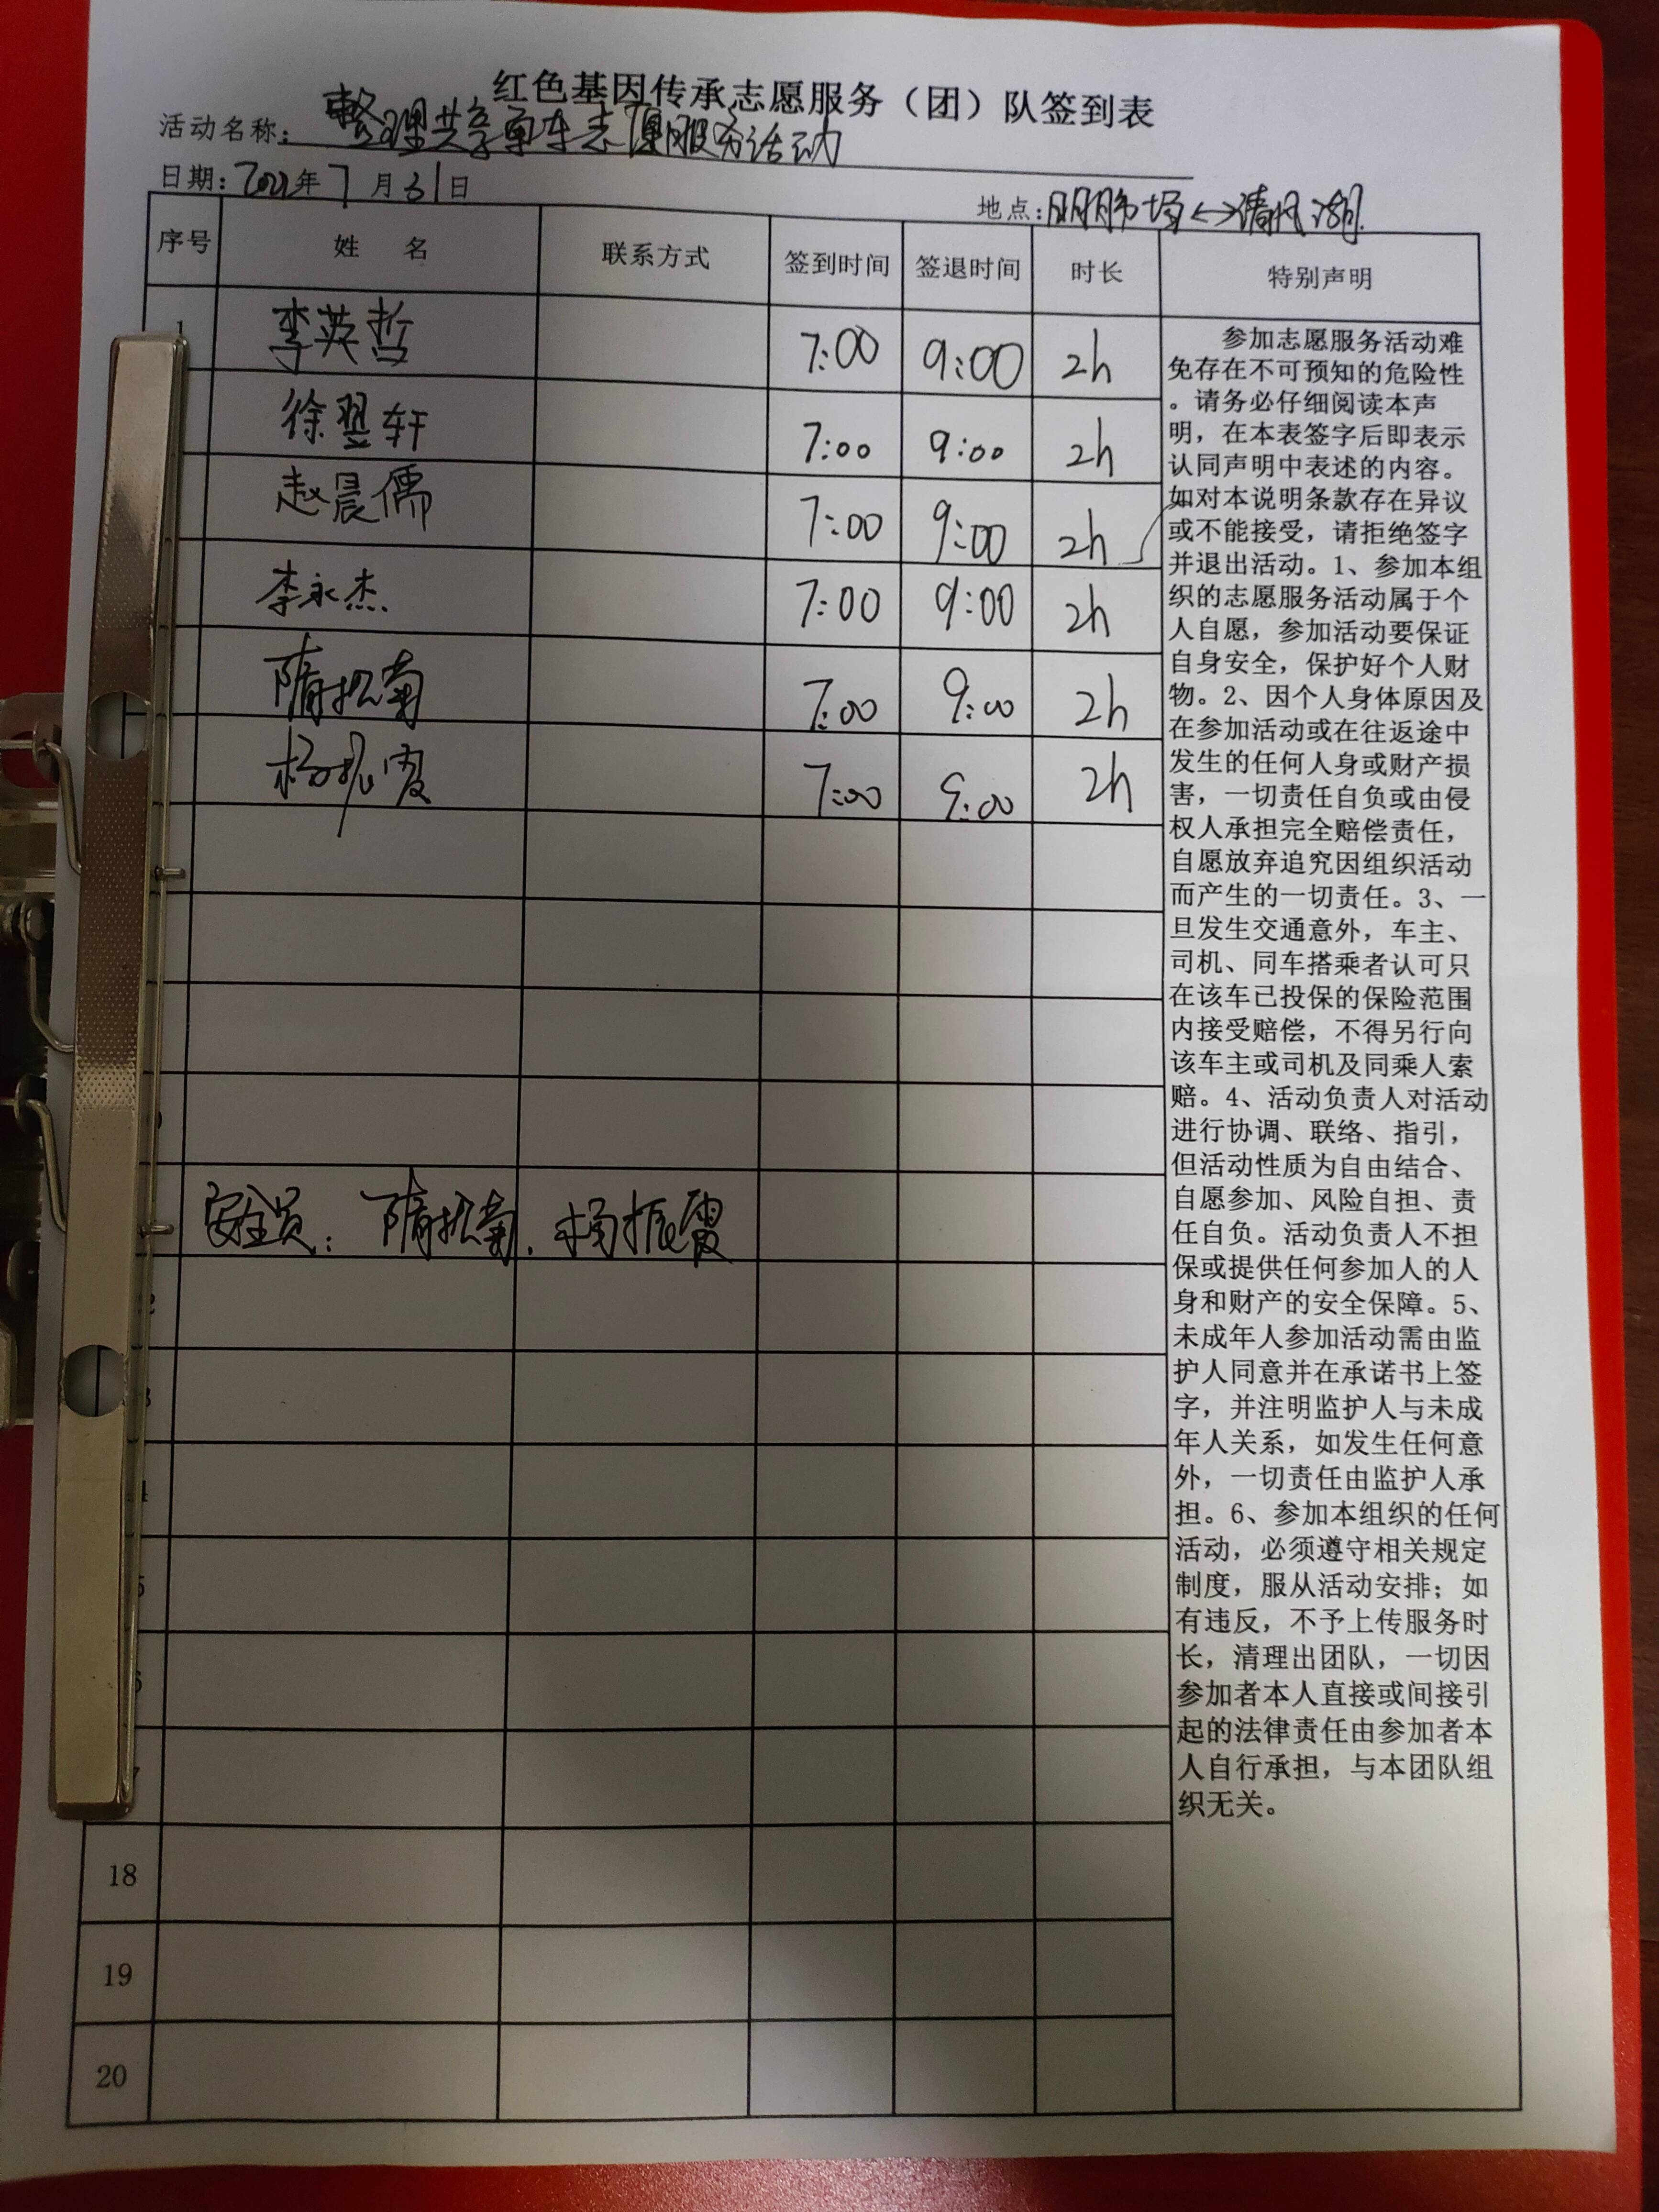 红色基因传承志愿服务（团）队签到表
活动名称：整理共享单车志愿服务活动
日期：2021年7月31日
地点：服市场<->清风湖
序号 姓 名 联系方式 签到时间 签退时间 时长 特别声明
1 李英哲 7:00 9:00 2h
徐翌轩 7:00 9:00 2h
赵晨儒 7:00 9:00 2h
李永杰 7:00 9:00 2h
隋振菊 7:00 9:00 2h
杨振霞 7:00 9:00 2h
安全员：隋振菊、杨振霞
18
19
20
参加志愿服务活动难
免存在不可预知的危险性
。请务必仔细阅读本声
明，在本表签字后即表示
认同声明中表述的内容。
如对本说明条款存在异议
或不能接受，请拒绝签字
并退出活动。1、参加本组
织的志愿服务活动属于个
人自愿，参加活动要保证
自身安全，保护好个人财
物。2、因个人身体原因及
在参加活动或在往返途中
发生的任何人身或财产损
害，一切责任自负或由侵
权人承担完全赔偿责任，
自愿放弃追究因组织活动
而产生的一切责任。3、一
旦发生交通意外，车主、
司机、同车搭乘者认可只
在该车已投保的保险范围
内接受赔偿，不得另行向
该车主或司机及同乘人索
赔。4、活动负责人对活动
进行协调、联络、指引，
但活动性质为自由结合、
自愿参加、风险自担、责
任自负。活动负责人不担
保或提供任何参加人的人
身和财产的安全保障。5、
未成年人参加活动需由监
护人同意并在承诺书上签
字，并注明监护人与未成
年人关系，如发生任何意
外，一切责任由监护人承
担。6、参加本组织的任何
活动，必须遵守相关规定
制度，服从活动安排；如
有违反，不予上传服务时
长，清理出团队，一切因
参加者本人直接或间接引
起的法律责任由参加者本
人自行承担，与本团队组
织无关。